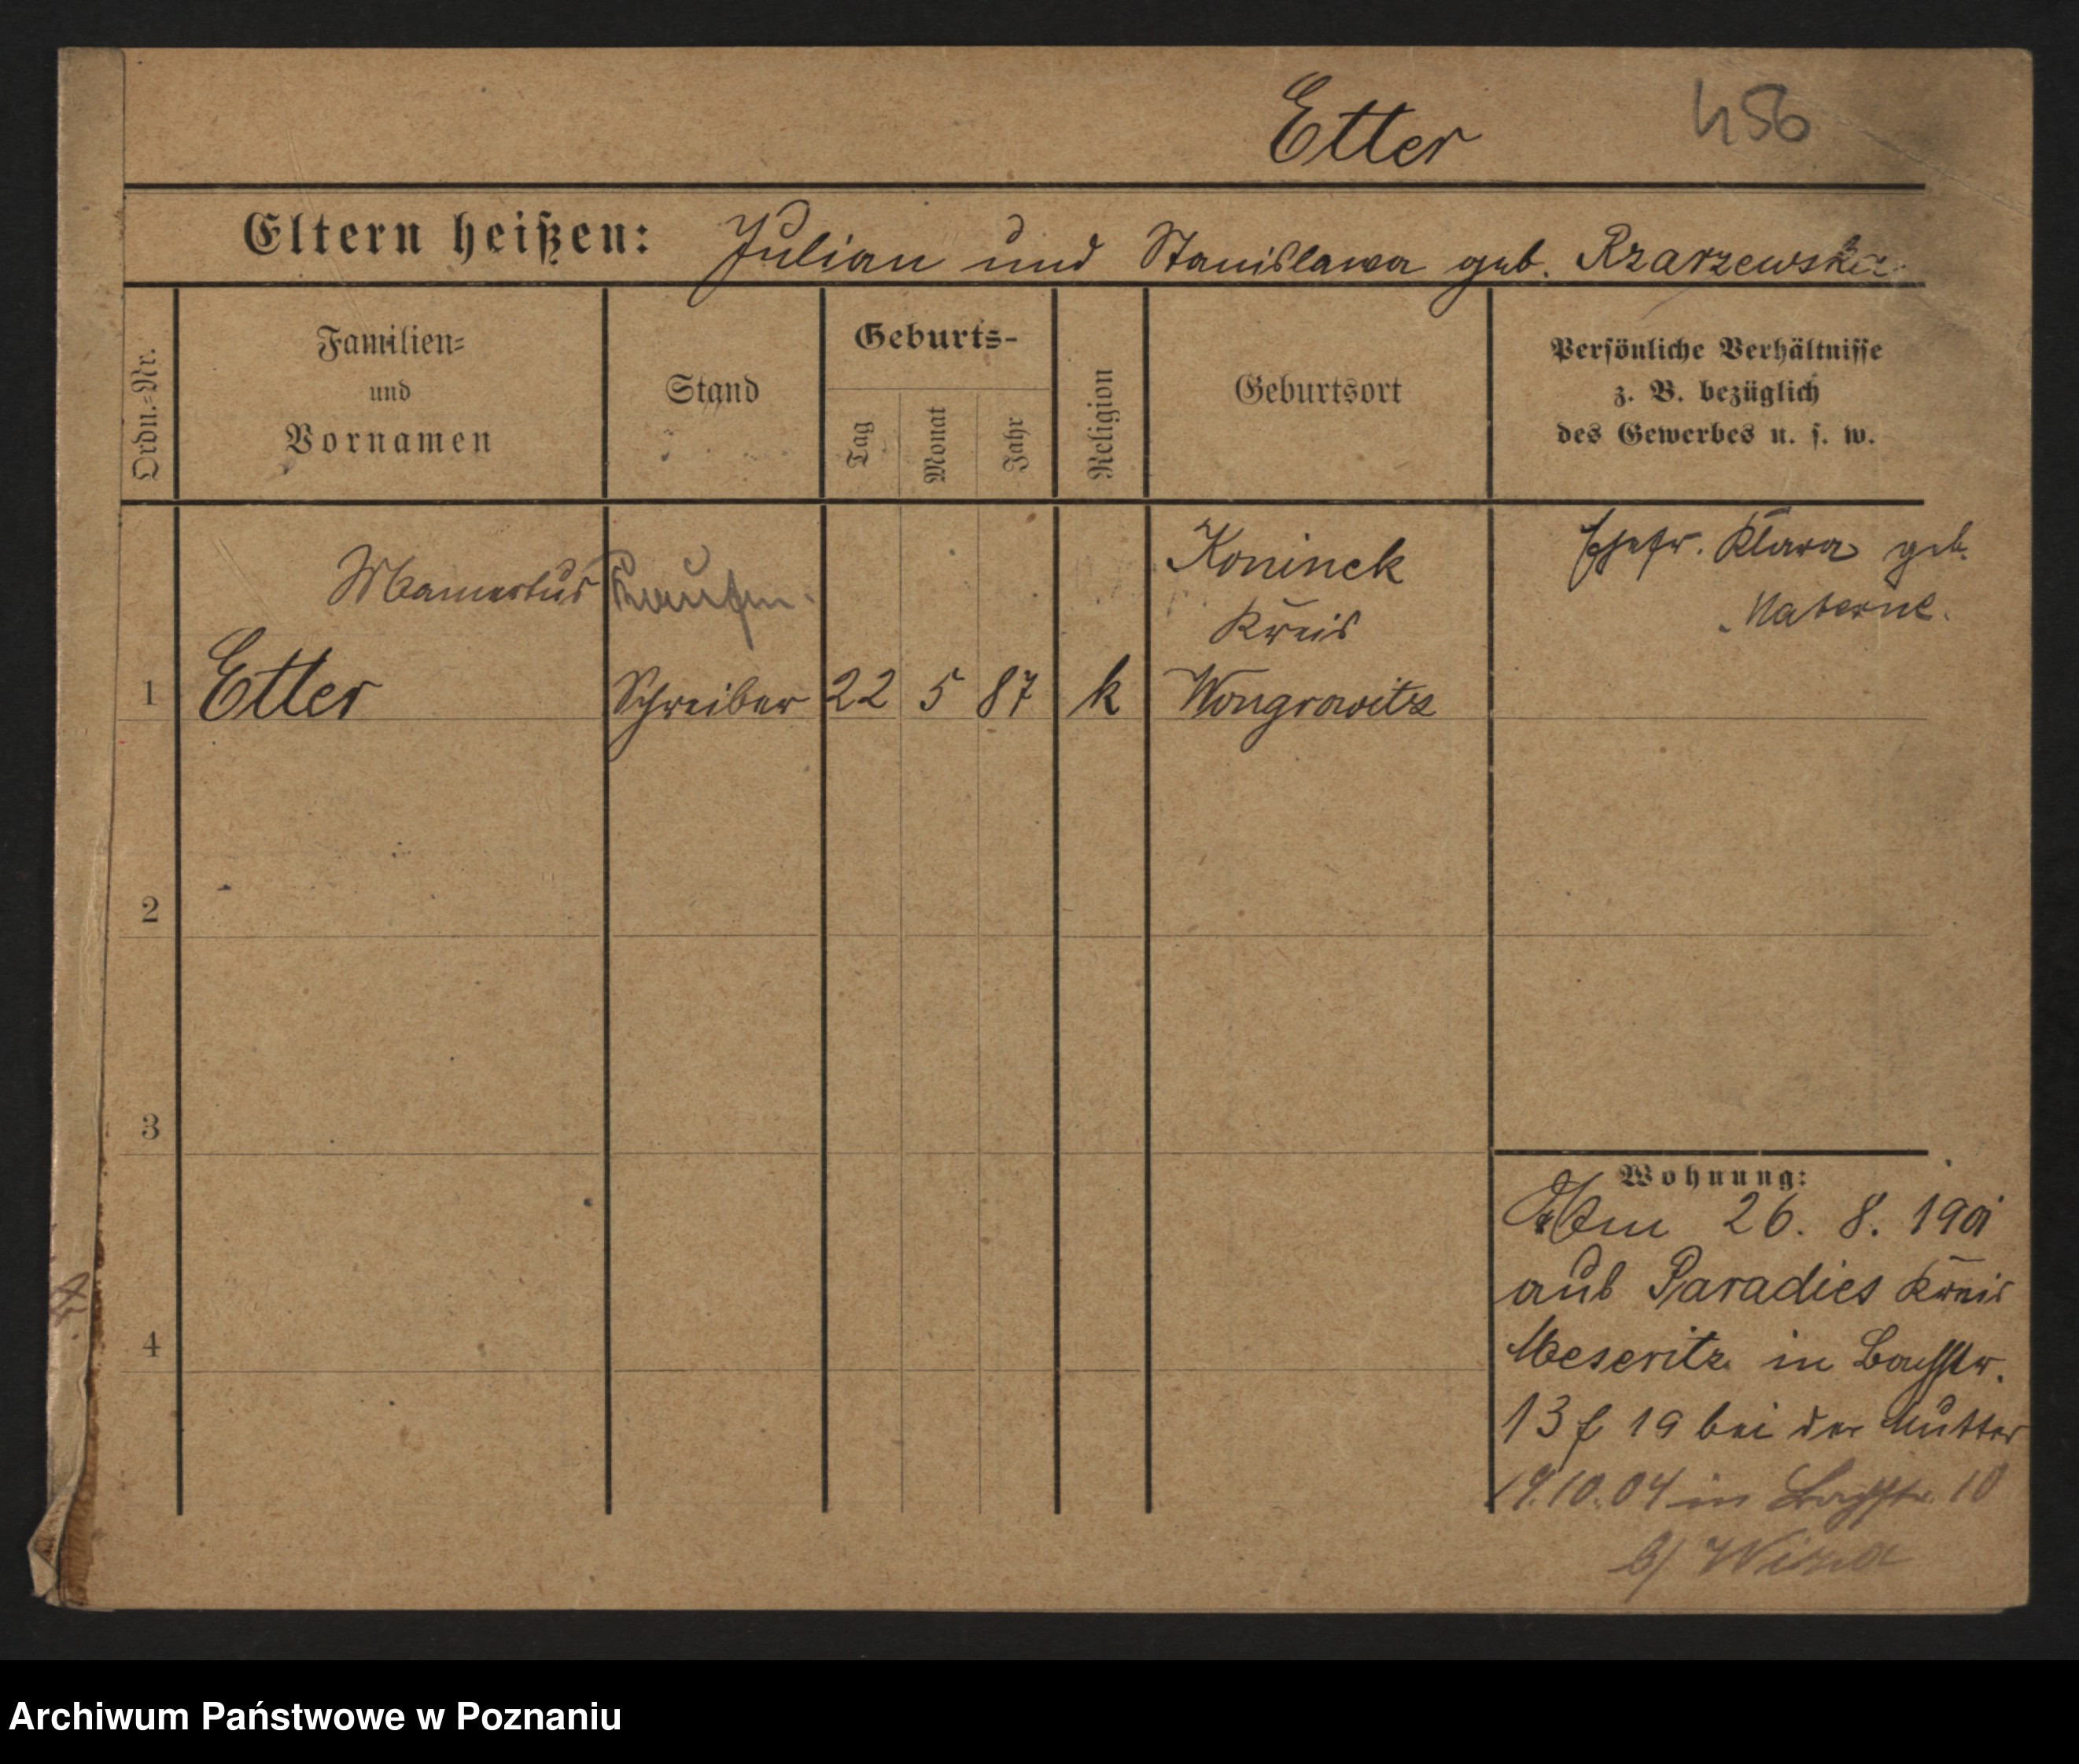 Etter 456
Eltern heißen: Julian und Stanislawa geb. Rzarzewska
Ordn.=Nr.
Familien=
und
Vornamen
Stand
Geburts-
Tag
Monat
Jahr
Religion
Geburtsort
Persönliche Verhältnisse
z. B. bezüglich
des Gewerbes u. s. w.
1
Mamertus
Etter
Kaufm.
Schreiber
22 5 87
k
Koninek
Kreis
Wongrowitz
Ehefr. Klara geb.
Materne.
2
3
4
Wohnung:
Am 26. 8. 1901
aus Paradies Kreis
Meseritz in
13 19 bei der Mutter
10.04 in 10
b/
Archiwum Państwowe w Poznaniu